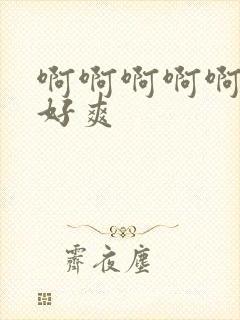 啊啊啊啊啊
好爽
霽夜塵